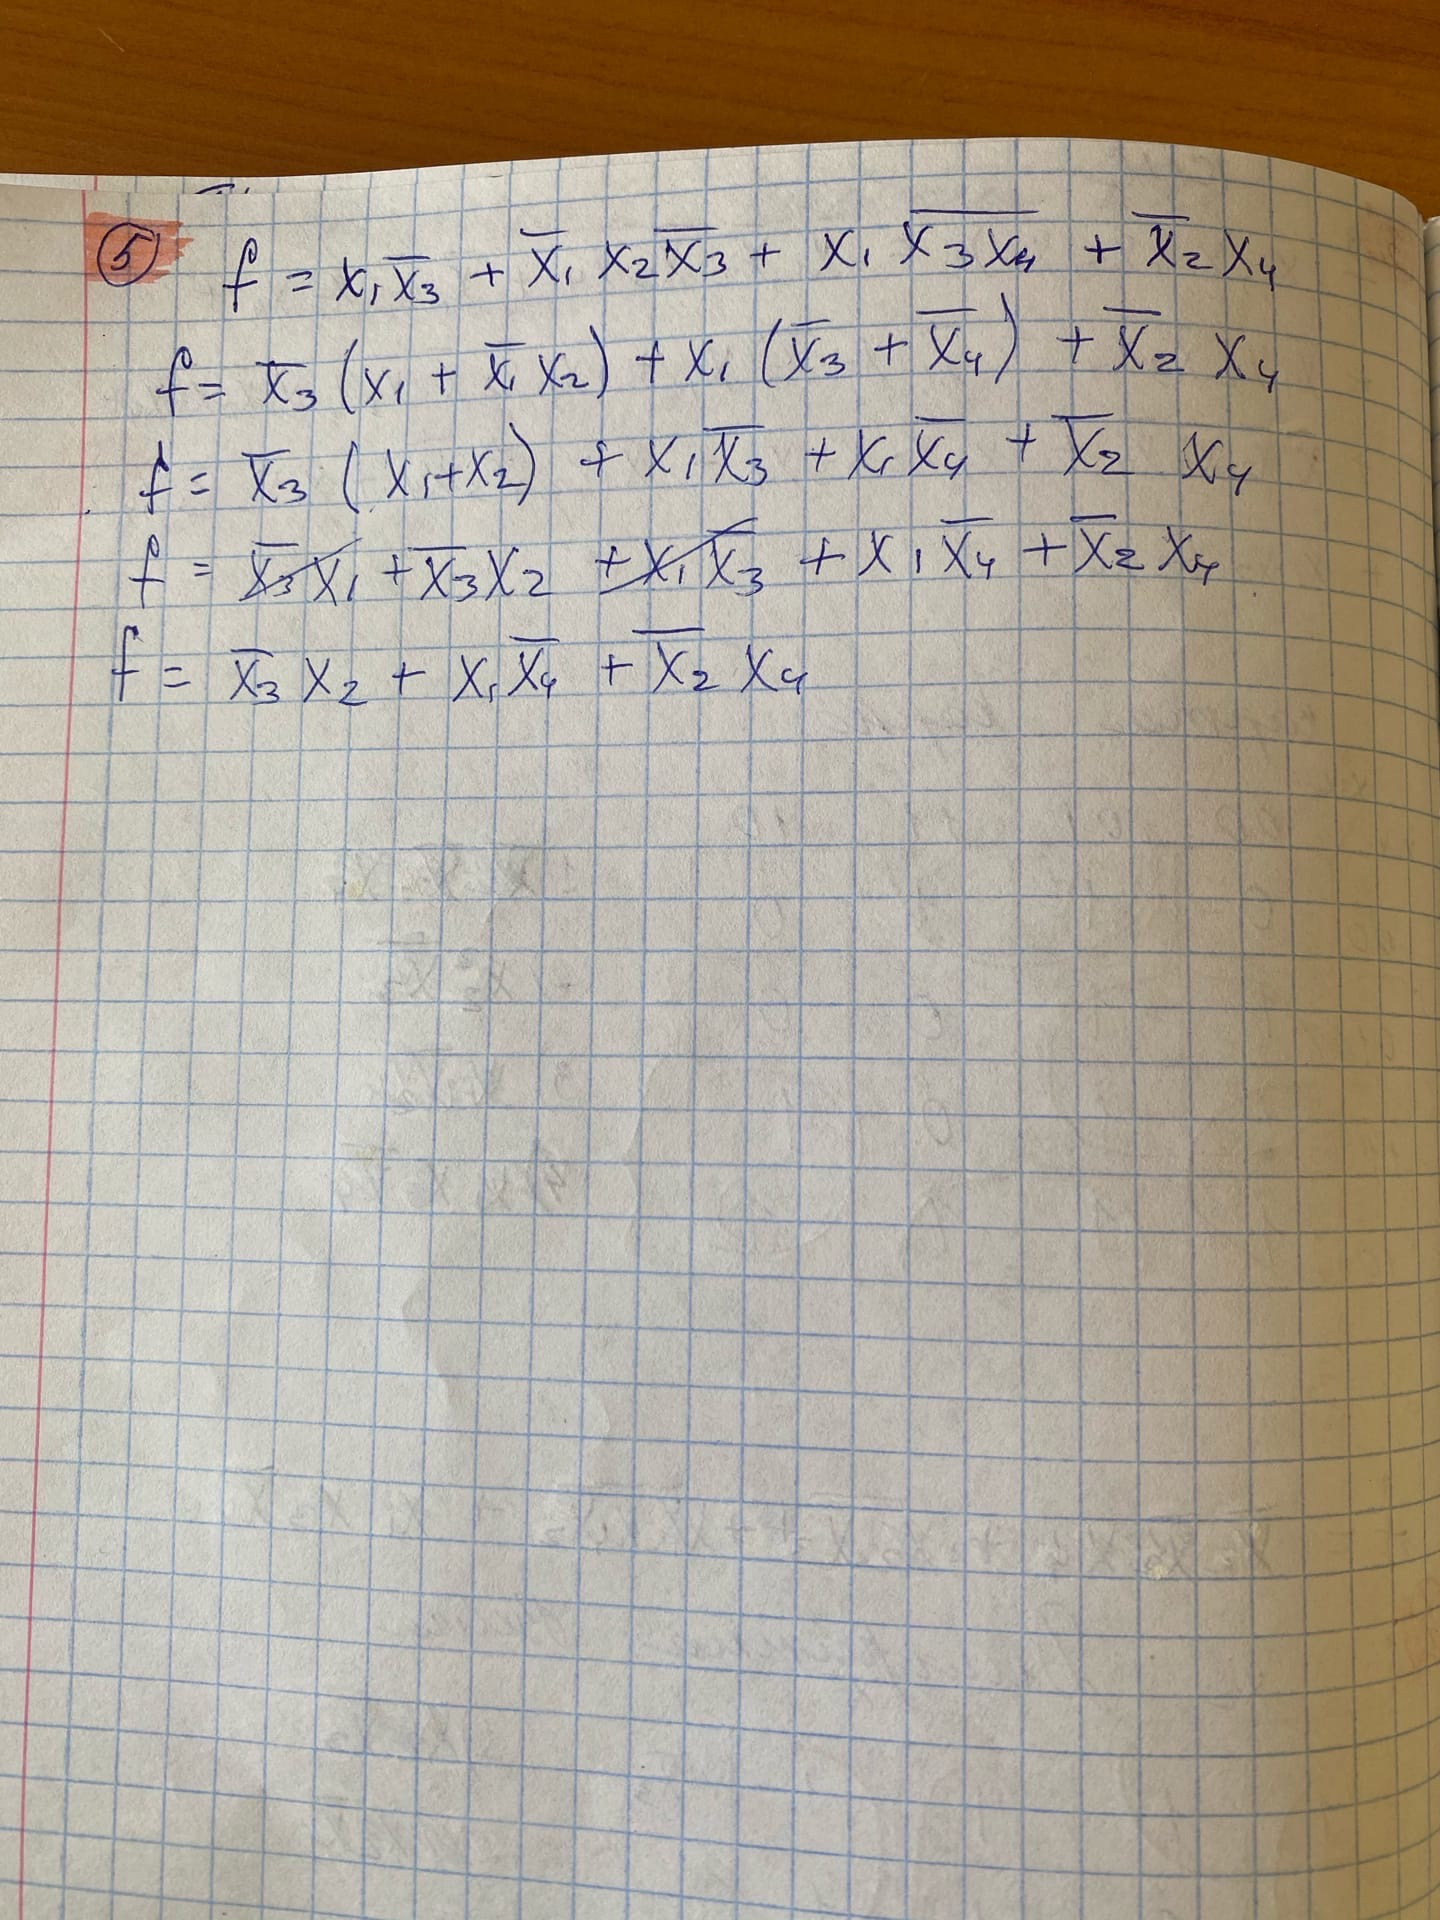 ⑤ f = x₁x̅₃ + x̅₁ x₂x̅₃ + x₁ \overline{x₃x₄} + x̅₂ x₄
f = x̅₃ (x₁ + x̅₁ x₂) + x₁ (x̅₃ + x̅₄) + x̅₂ x₄
f = x̅₃ (x₁+x₂) + x₁x̅₃ + x₁x̅₄ + x̅₂ x₄
f = x̅₃x₁ + x̅₃x₂ + x₁x̅₃ + x₁x̅₄ + x̅₂x₄
f = x̅₃x₂ + x₁x̅₄ + x̅₂x₄